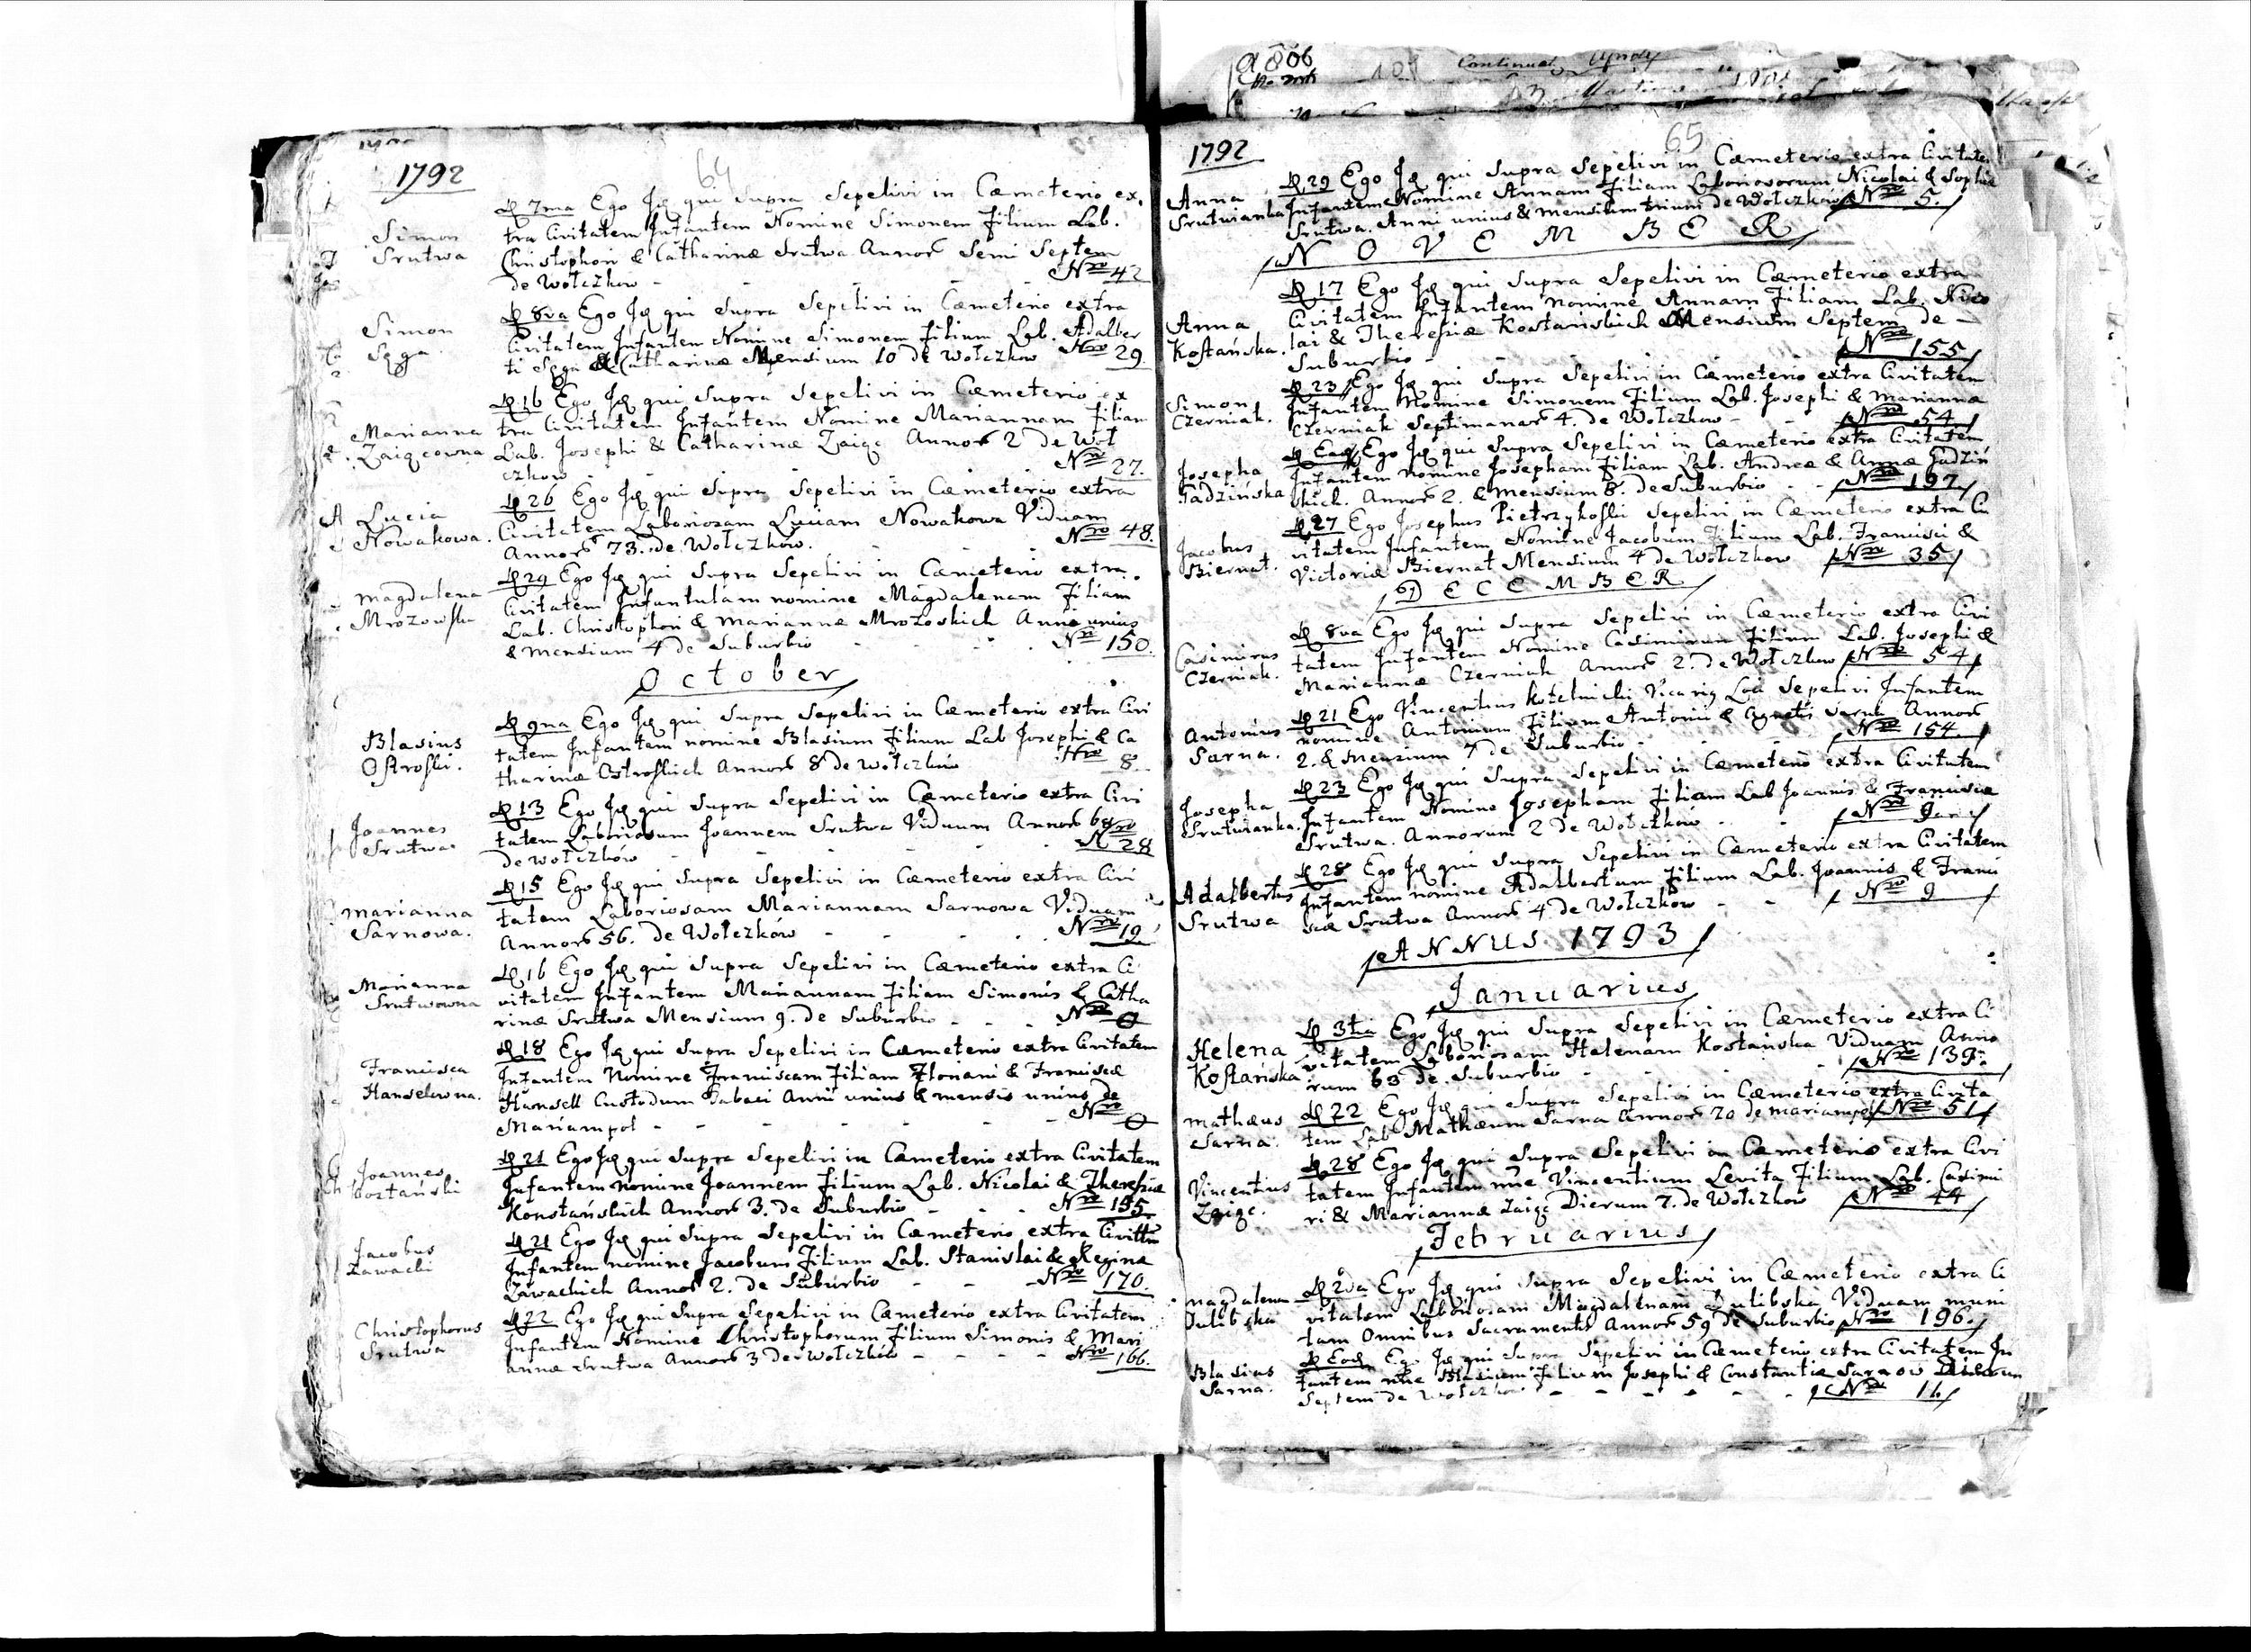 1792
64
Simon
Srutwa
D 7ma Ego Jdq qui Supra Sepelivi in Cæmeterio ex
tra Civitatem Infantem Nomine Simonem Filium Lab.
Christophori & Catharinæ Srutwa Annor Semi Septem
de Wołczkow - Nro 42
Simon
Sęga
D 8va Ego Jdq qui Supra Sepelivi in Cæmeterio extra
Civitatem Infantem Nomine Simonem Filium Lab. Adalber
ti Sęga & Catharinæ Mensium 10 de Wołczkow Nro 29
Marianna
Zaiącowna
D 16 Ego Jdq qui Supra Sepelivi in Cæmeterio ex
tra Civitatem Infantem Nomine Mariannam Filiam
Lab. Josephi & Catharinæ Zaiąc Annor 2 de Woł
czkow - Nro 27.
Lucia
Nowakowa.
D 26 Ego Jdq qui Supra Sepelivi in Cæmeterio extra
Civitatem Laboriosam Luciam Nowakowa Viduam
Annor 73. de Wołczkow. Nro 48.
Magdalena
Mrozowska
D 29 Ego Jdq qui Supra Sepelivi in Cæmeterio extra
Civitatem Infantulam nomine Magdalenam Filiam
Lab. Christophori & Mariannæ Mrozoskich Anni unius
& Mensium 4 de Suburbio - Nro 150.
October
Blasius
Ostroski.
D 9na Ego Jdq qui Supra Sepelivi in Cæmeterio extra Civi
tatem Infantem nomine Blasium Filium Lab Josephi & Ca
tharinæ Ostroskich Annor 8 de Wołczkow Nro 8
Joannes
Srutwa.
D 13 Ego Jdq qui Supra Sepelivi in Cæmeterio extra Civi
tatem Laboriosum Joannem Srutwa Viduum Annor 68
de Wołczków - Nro 28
Marianna
Sarnowa.
D 15 Ego Jdq qui Supra Sepelivi in Cæmeterio extra Civi
tatem Laboriosam Mariannam Sarnowa Viduam
Annor 56. de Wołczków - Nro 19
Marianna
Srutwowna
D 16 Ego Jdq qui Supra Sepelivi in Cæmeterio extra Ci
vitatem Infantem Mariannam Filiam Simonis & Catha
rinæ Srutwa Mensium 9. de Suburbio - Nro 0
Francisca
Hanselowna.
D 18 Ego Jdq qui Supra Sepelivi in Cæmeterio extra Civitatem
Infantem Nomine Franciscam Filiam Floriani & Franciscæ
Hansell Custodum Tabaci Anni unius & mensis unius de
Mariampol - Nro 0
Joannes
Kostański
D 21 Ego Jdq qui Supra Sepelivi in Cæmeterio extra Civitatem
Infantem nomine Joannem Filium Lab. Nicolai & Theresiæ
Konstańskich Annor 3. de Suburbio - Nro 155
Jacobus
Zawacki
D 21 Ego Jdq qui Supra Sepelivi in Cæmeterio extra Civittm
Infantem nomine Jacobum Filium Lab. Stanislai & Reginæ
Zawackich Annor 2. de Suburbio - Nro 170.
Christophorus
Srutwa
D 22 Ego Jdq qui Supra Sepelivi in Cæmeterio extra Civitatem
Infantem Nomine Christophorum Filium Simonis & Mari
annæ Srutwa Annor 3 de Wołczków - Nro 166.
1792
65
Anna
Srutwianka
D 29 Ego Jdq qui Supra Sepelivi in Cæmeterio extra Civitatem
Infantem Nomine Annam Filiam Laboriosorum Nicolai & Sophiæ
Srutwa. Anni unius & mensium trium de Wołczkow Nro 5.
NOVEMBER
Anna
Kostańska.
D 17 Ego Jdq qui Supra Sepelivi in Cæmeterio extra
Civitatem Infantem nomine Annam Filiam Lab. Nico
lai & Theresiæ Kostańskich Mensium Septem de -
Suburbio - Nro 155
Simon
Czerniak.
D 23 Ego Jdq qui Supra Sepelivi in Cæmeterio extra Civitatem
Infantem Nomine Simonem Filium Lab. Josephi & Marianna
Czerniak Septimanar 4. de Wołczkow - Nro 54
Josepha
Gadzińska
D Ead Ego Jdq qui Supra Sepelivi in Cæmeterio extra Civitatem
Infantem nomine Josepham Filiam Lab. Andreæ & Annæ Gadziń
skich. Annor 2. & Mensium 8. de Suburbio - - Nro 197
Jacobus
Biernat.
D 27 Ego Josephus Pietrzykoski Sepelivi in Cæmeterio extra Ci
vitatem Infantem Nomine Jacobum Filium Lab. Francisci &
Victoriæ Biernat Mensium 4 de Wołczkow Nro 35
DECEMBER
Casimirus
Czerniak.
D 8va Ego Jdq qui Supra Sepelivi in Cæmeterio extra Civi
tatem Infantem Nomine Casimirum Filium Lab. Josephi &
Mariannæ Czerniak Annor 2. de Wołczkow Nro 54
Antonius
Sarna.
D 21 Ego Vincentius Kotelnicki Vicarig Loci Sepelivi Infantem
nomine Antonium Filium Antonii & Agnetis Sarna Annor
2. & Mensium 7 de Suburbio - Nro 154
Josepha
Srutwianka.
D 23 Ego Jdq qui Supra Sepelivi in Cæmeterio extra Civitatem
Infantem Nomine Josepham Filiam Lab Joannis & Franciscæ
Srutwa. Annorum 2 de Wołczkow - Nro 9
Adalbertus
Srutwa
D 28 Ego Jdq qui Supra Sepelivi in Cæmeterio extra Civitatem
Infantem nomine Adalbertum Filium Lab. Joannis & Franci
scæ Srutwa Annor 4 de Wołczkow - - Nro 9
ANNUS 1793
Januarius
Helena
Kostańska
D 3tia Ego Jdq qui Supra Sepelivi in Cæmeterio extra Ci
vitatem Laboriosam Helenam Kostańska Viduam Anno
rum 63 de Suburbio - Nro 139.
Mathæus
Sarna.
D 22 Ego Jdq qui Supra Sepelivi in Cæmeterio extra Civita
tem Lab Mathæum Sarna Annor 20 de Mariampol Nro 51
Vincentius
Zaiąc.
D 28 Ego Jdq qui Supra Sepelivi in Cæmeterio extra Civi
tatem Infantem nne Vincentium Levita Filium Lab. Casimi
ri & Mariannæ Zaiąc Dierum 7. de Wołczkow Nro 44
Februarius
Magdalena
Sulibska
D 2da Ego Jdq qui Supra Sepelivi in Cæmeterio extra Ci
vitatem Laboriosam Magdalenam Sulibska Viduam muni
tam Omnibus Sacramentis Annor 59 de Suburbio Nro 196.
Blasius
Sarna.
D Eod Ego Jdq qui Supra Sepelivi in Cæmeterio extra Civitatem In
fantem nne Blasium Filium Josephi & Constantiæ Sarnow Dierum
Septem de Wołczkow - Nro 16